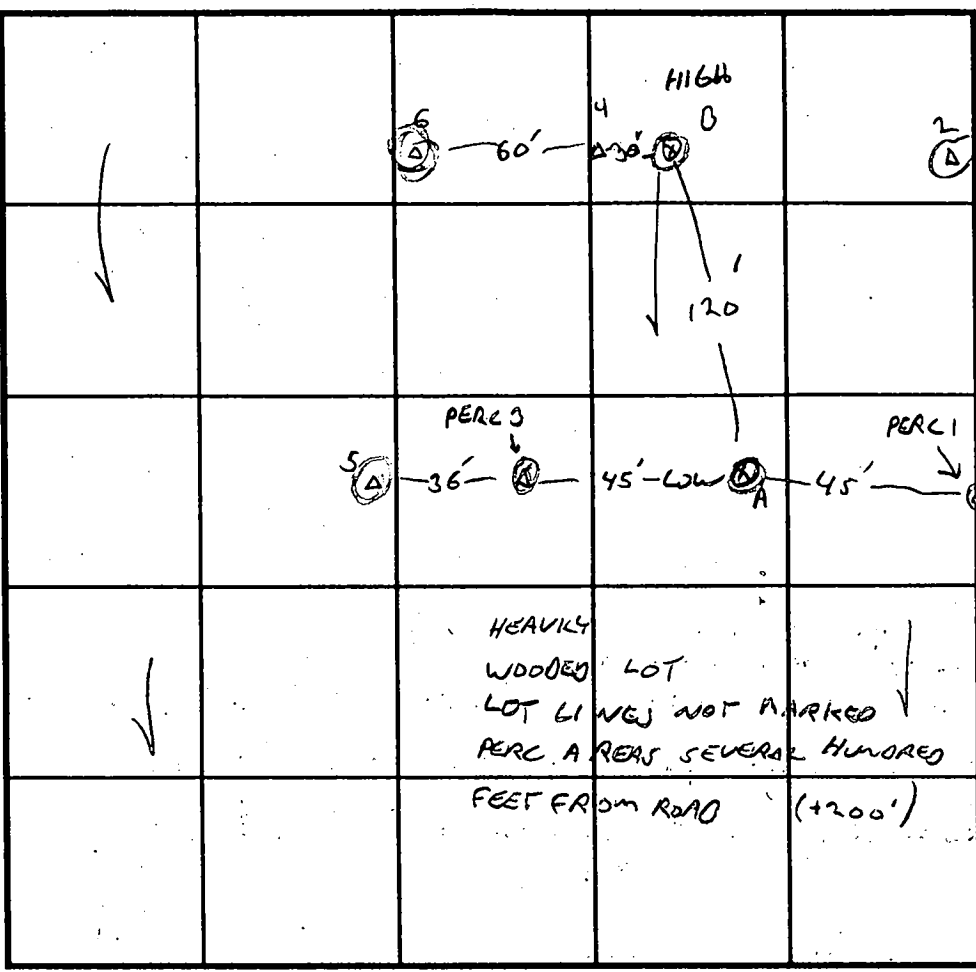 HIGH
B
6
60'
4
30'
2
120'
PERC 3
PERC 1
5
36'
45'
LOW
A
45'
HEAVILY
WOODED LOT
LOT LINES NOT MARKED
PERC AREAS SEVERAL HUNDRED
FEET FROM ROAD (+200')